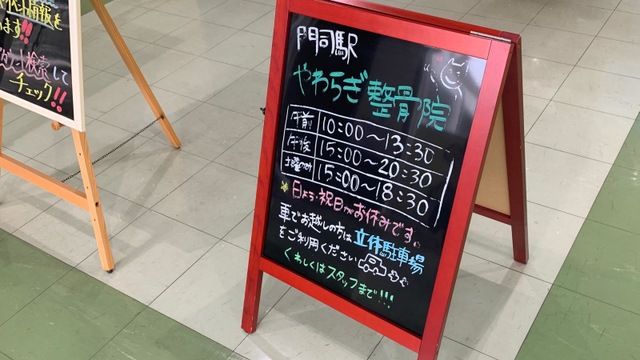 情報を
ます!!
検索して
チェック!!
門司駅
やわらぎ整骨院
午前 10:00〜13:30
午後 15:00〜20:30
土曜のみ 15:00〜18:30
※日よう・祝日はお休みです。
車でお越しの方は立体駐車場
をご利用ください
くわしくはスタッフまで!!!